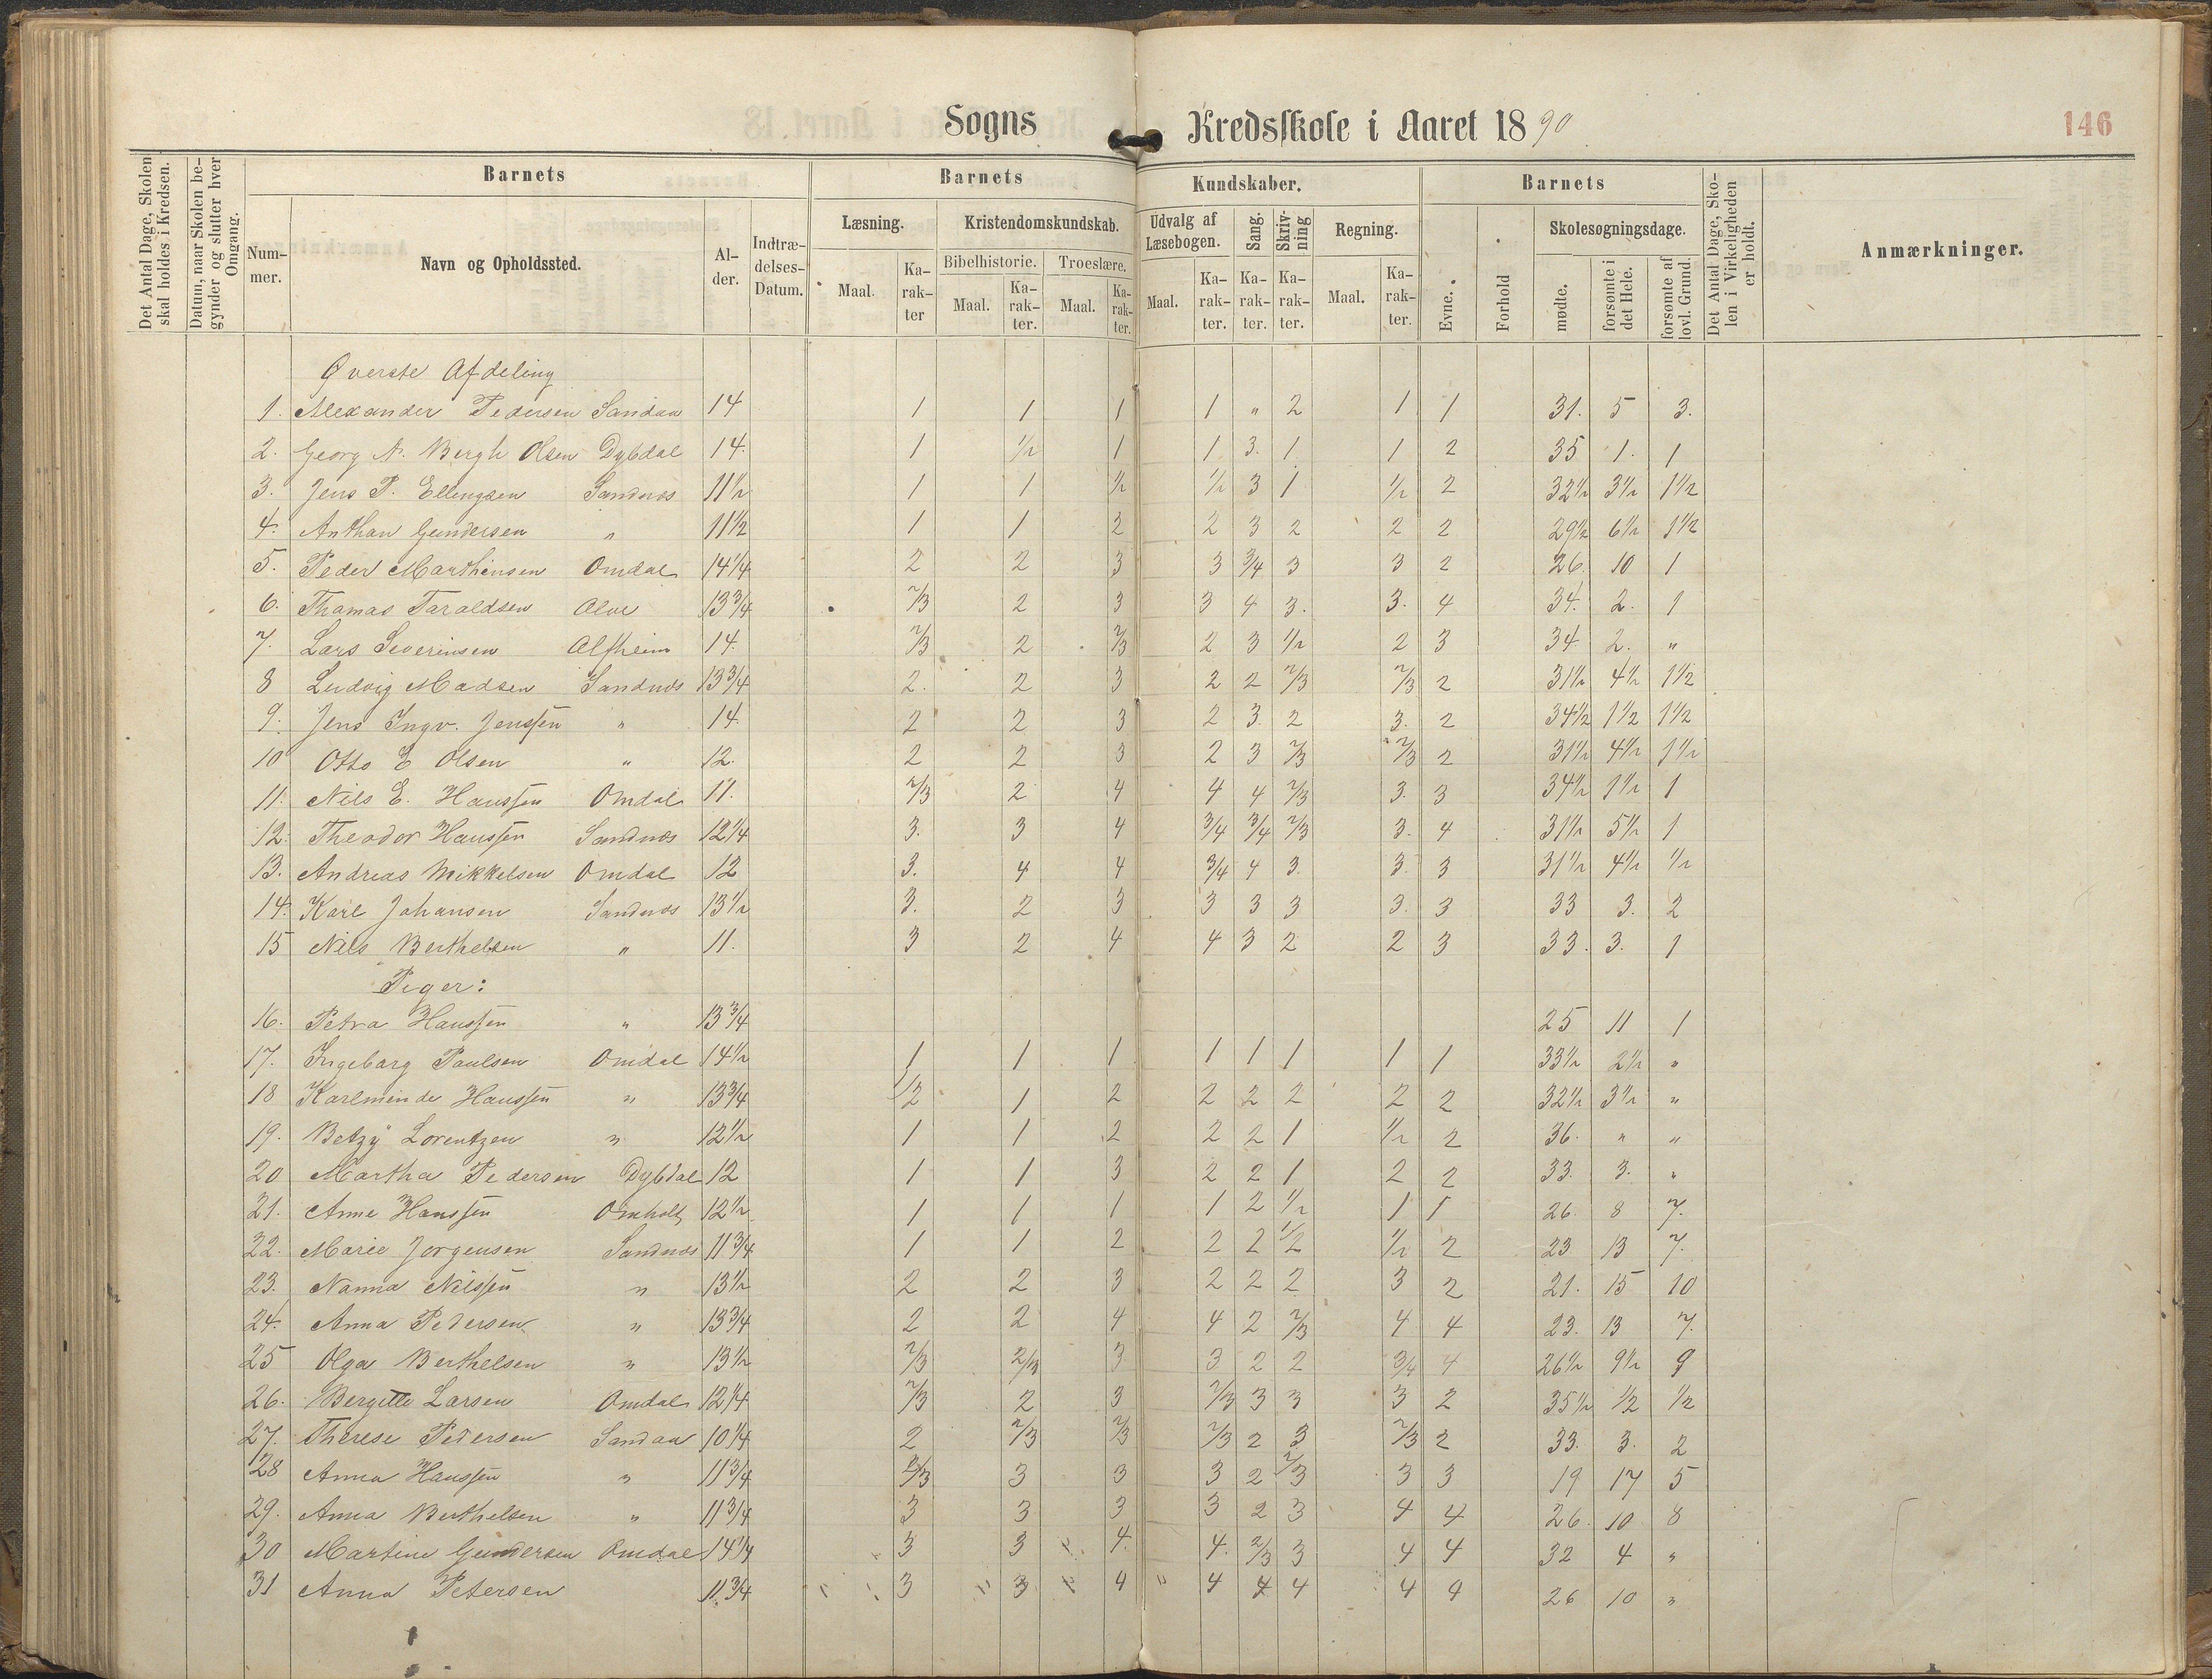 Sogns Kredsskole i Aaret 1890
146
Det Antal Dage, Skolen skal holdes i Kredsen.
Datum, naar Skolen begynder og slutter hver Omgang.
Barnets
Num-mer.
Navn og Opholdssted.
Al-der.
Indtræ-delses-Datum.
Barnets Kundskaber.
Læsning.
Maal. Ka-rak-ter
Kristendomskundskab.
Bibelhistorie. Troeslære.
Maal. Ka-rak-ter. Maal. Ka-rak-ter.
Udvalg af Læsebogen.
Maal. Ka-rak-ter.
Sang. Ka-rak-ter.
Skriv-ning Ka-rak-ter.
Regning.
Maal. Ka-rak-ter.
Barnets
Evne. Forhold
Skolesøgningsdage.
mødte. forsømte i det Hele. forsømte af lovl. Grund.
Det Antal Dage, Sko-len i Virkeligheden er holdt.
Anmærkninger.
Øverste Afdeling
1. Alexander Pedersen Sandaa 14 1 1 1 1 " 2 1 1 31. 5 3.
2. Georg N. Bergh Olsen Dybdal 14. 1 1/2 1 1 3. 1 1 2 35 1. 1
3. Jens P. Ellingsen Sandnæs 11 1/2 1 1 1/2 1/2 3 1 1/2 2 32 1/2 3 1/2 1 1/2
4. Anthan Gundersen " 11 1/2 1 1 2 2 3 2 2 2 29 1/2 6 1/2 1 1/2
5. Peder Marthinsen Omdal 14 1/4 2 2 3 3 3/4 3 3 2 26. 10 1
6. Thomas Taraldsen Alve 13 3/4 2/3 2 3 3 4 3. 3. 4 34. 2. 1
7. Lars Severinsen Alfheim 14. 2/3 2 2/3 2 3 1/2 2 3 34 2. "
8 Ludvig Madsen Sandnæs 13 3/4 2. 2 3 2 2 2/3 2/3 2 31 1/2 4 1/2 1 1/2
9. Jens Ingv. Jenssen " 14. 2 2 3 2 3. 2 3. 2 34 1/2 1 1/2 1 1/2
10 Otto E Olsen " 12. 2 2 3 2 3 2/3 2/3 2 31 1/2 4 1/2 1 1/2
11. Nils E. Hanssen Omdal 11. 2/3 2 4 4 4 2/3 3. 3 34 1/2 1 1/2 1
12. Theodor Hanssen Sandnæs 12 1/4 3. 3 4 3/4 3/4 2/3 3. 4 31 1/2 5 1/2 1
13. Andreas Mikkelsen Omdal 12 3. 4 4 3/4 4 3. 3. 3 31 1/2 4 1/2 1/2
14. Karl Johansen Sandnæs 13 1/2 3. 2 3 3 3 3 3. 3 33 3. 2
15 Nils Berthelsen " 11. 3 2 4 4 3 2 2 3 33. 3. 1
Piger:
16. Petra Hanssen " 13 3/4 25 11 1
17. Ingeborg Paulsen Omdal 14 1/2 1 1 1 1 1 1 1 1 33 1/2 2 1/2 "
18 Karlminde Hanssen " 13 3/4 1/2 1 2 2 2 2 2 2 32 1/2 3 1/2 "
19. Betzy Lorentzen " 12 1/2 1 1 2 2 2 1 1/2 2 36. " "
20 Martha Pedersen Dybdal 12 1 1 3 2 2 1 2 2 33. 3. "
21. Anne Hanssen Omholt 12 1/2 1 1 1 1 2 1/2 1 1 26. 8 7.
22. Marie Jorgensen Sandnæs 11 3/4 1 1 2 2 2 1/2 1/2 2 23 13 7.
23. Nanna Nilssen " 13 1/2 2 2 3 2 2 2 3 2 21. 15 10
24. Anna Pedersen " 13 3/4 2 2 4 4 2 2/3 4 4 23. 13 7.
25 Olga Berthelsen " 13 1/2 2/3 2/3 3 3 2 2 3/4 4 26 1/2 9 1/2 9
26. Bergitte Larsen Omdal 12 1/4 2/3 2 3 2/3 3 3 3 2 35 1/2 1/2 1/2
27. Therese Pedersen Sandaa 10 1/4 2 2/3 2/3 2/3 2 3 2/3 2 33. 3. 2
28 Anna Hanssen " 11 3/4 2/3 3 3 3 2 2/3 3 3 19 17 5
29. Anna Berthelsen " 11 3/4 3 3 3 3 2 3 4 4 26. 10 8
30 Martine Gundersen Omdal 14 1/4 3 3 4. 4. 2/3 3 4 4 32 4 "
31 Anna Petersen 11 3/4 3 3 4 4 4 4 4 4 26 10 "